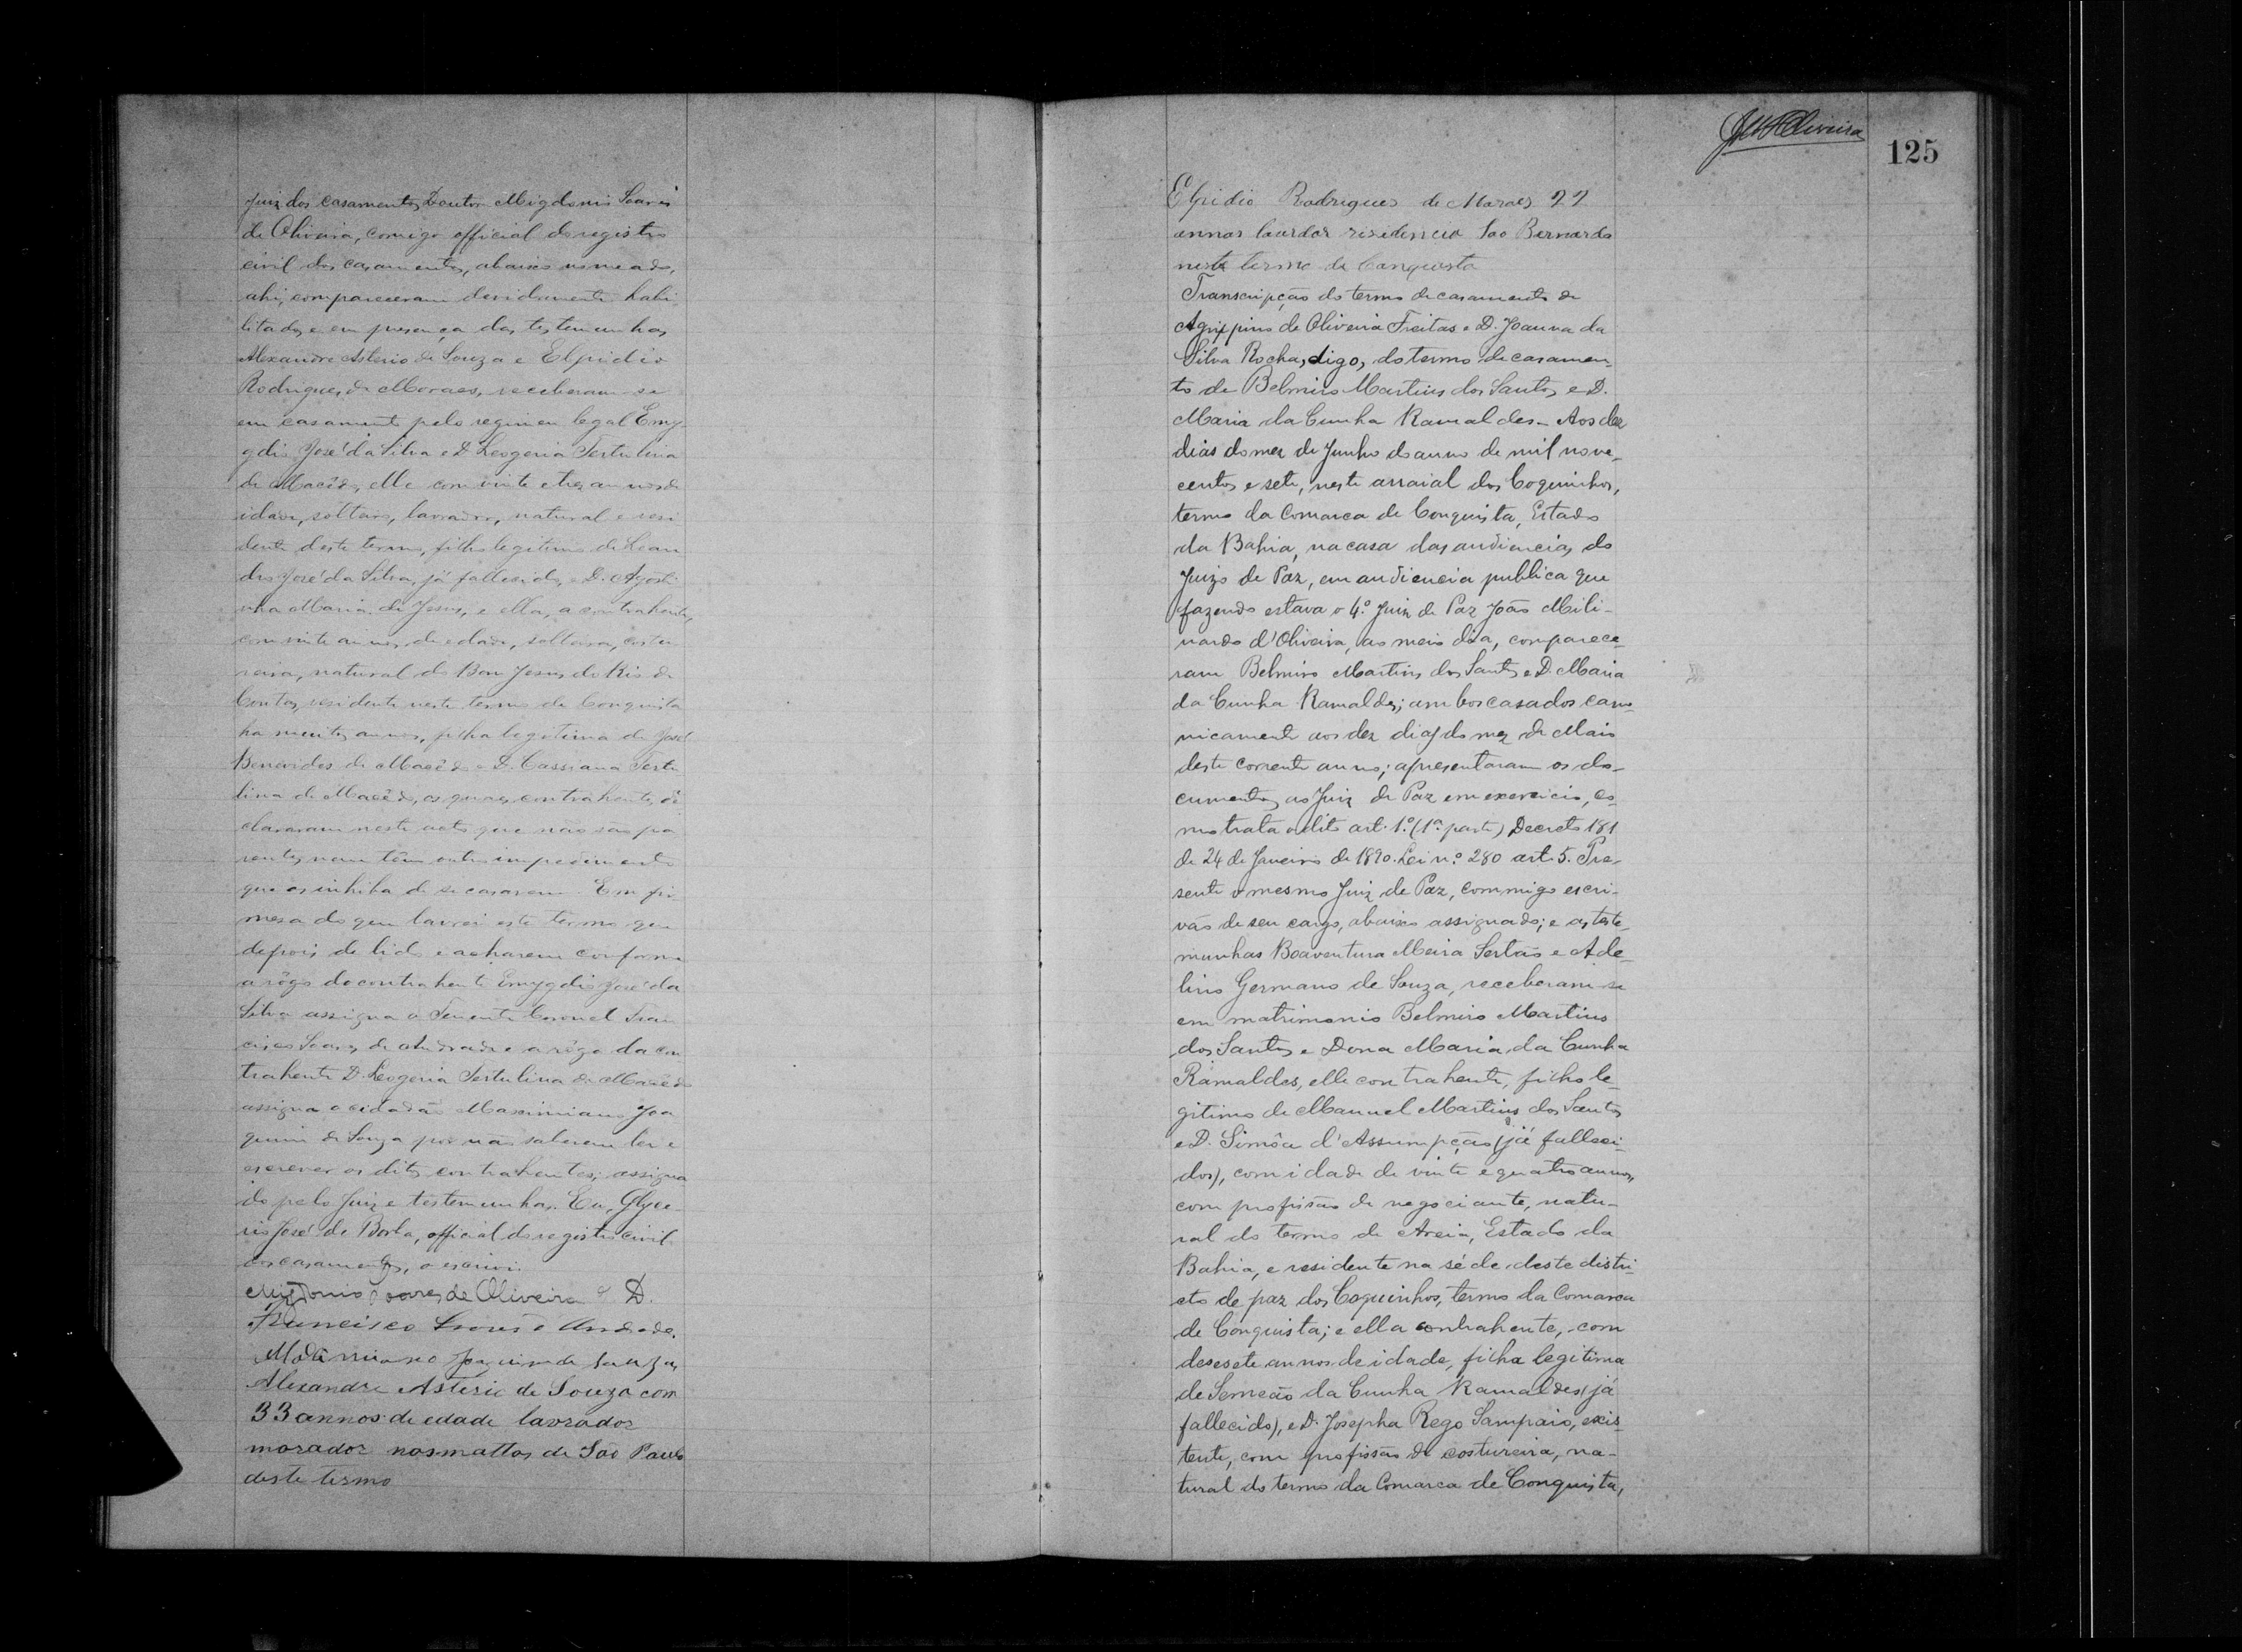 Juiz dos casamentos Doutor Migdonio Soares
de Oliveira, comigo official do registro
civil dos casamentos, abaixo nomeado,
ahi, compareceram devidamente habi
litados e em presença das testemunhas
Alexandre Asterio de Souza e Elpidio
Rodrigues de Moraes, receberam-se
em casament pelo regimen legal Emy
gdio José da Silva e D. Leogeria Tertulina
de Macêdo, elle com vinte e tres annos de
idade, solteiro, lavrador, natural e resi
dente deste termo, filho legitimo de Lean
dro José da Silva, já fallecido, e D. Agosti
nha Maria de Jesus, e ella, a contrahente,
com vinte annos de edade, solteira, costu
reira, natural do Bom Jesus do Rio de
Contas, residente neste termo de Conquista
ha muitos annos, filha legitima de José
Benevides de Macêdo e D. Cassiana Tertu
lina de Macêdo, os quaes contrahentes de
clararam neste acto que não são pa
rentes nem têm outro impedimento
que os inhiba de se casarem. Em fir
mesa do que lavrei este termo que
depois de lido e acharem conforme
a rôgo do contrahente Emygdio José da
Silva assigna o Tenente Coronel Fran
cisco Soares de Andrade e a rôgo da con
trahente D. Leogeria Tertulina de Macêdo
assigna o cidadão Maximiano Joa
quim de Souza por não saberem ler e
escrever os ditos contrahentes; assigna
do pelo Juiz e testemunhas. Eu, Glyce
rio José de Borba, official do registro civil
dos casamentos, o escrevi.
Migdonio Soares de Oliveira D.
Francisco Soares Andrade.
Maximiano Joaquim de Souza
Alexandre Asterio de Souza com
33 annos de edade lavrador
morador nos mattos de São Paulo
deste termo
125
Elpidio Rodrigues de Moraes 22
annos residencia Sao Bernardo
neste termo de Conquista
Transcripção do termo de casamento de
Agrippino de Oliveira Freitas e D. Joanna da
Silva Rocha, digo, do termo de casamen-
to de Belmiro Martins dos Santos e D.
Maria da Cunha Ramaldes - Aos dez
dias do mez de Junho do anno de mil nove-
centos e sete, neste arraial dos Coquinhos,
termo da Comarca de Conquista, Estado
da Bahia, na casa das audiencias do
Juizo de Paz, em audiencia publica que
fazendo estava o 4º Juiz de Paz João Mili-
nardo d'Oliveira, ao meio dia, comparece-
ram Belmiro Martins dos Santos e D. Maria
da Cunha Ramaldes; ambos casados cano-
nicamente aos dez dias do mez de Maio
deste corrente anno; apresentaram os do-
cumentos ao Juiz de Paz em exercicio, co-
mo trata o dito art. 1º (1ª parte) Decreto 181
de 24 de Janeiro de 1890. Lei nº 280 art. 5. Pre-
sente o mesmo Juiz de Paz, commigo escri-
vão de seu cargo, abaixo assignado; e as teste-
munhas Boaventura Meira Sertão e Ade-
lino Germano de Souza, receberam-se
em matrimonio Belmiro Martins
dos Santos e Dona Maria da Cunha
Ramaldes, elle contrahente, filho le-
gitimo de Manuel Martins dos Santos
e D. Simôa d'Assumpção (já falleci-
dos), com idade de vinte e quatro annos,
com profissão de negociante, natu-
ral do termo de Areia, Estado da
Bahia, e residente na séde deste distri-
cto de paz dos Coquinhos, termo da Comarca
de Conquista; e ella contrahente, com
desesete annos de idade, filha legitima
de Semeão da Cunha Ramaldes (já
fallecido), e D. Josepha Rego Sampaio, exis-
tente, com profissão de costureira, na-
tural do termo da Comarca de Conquista,